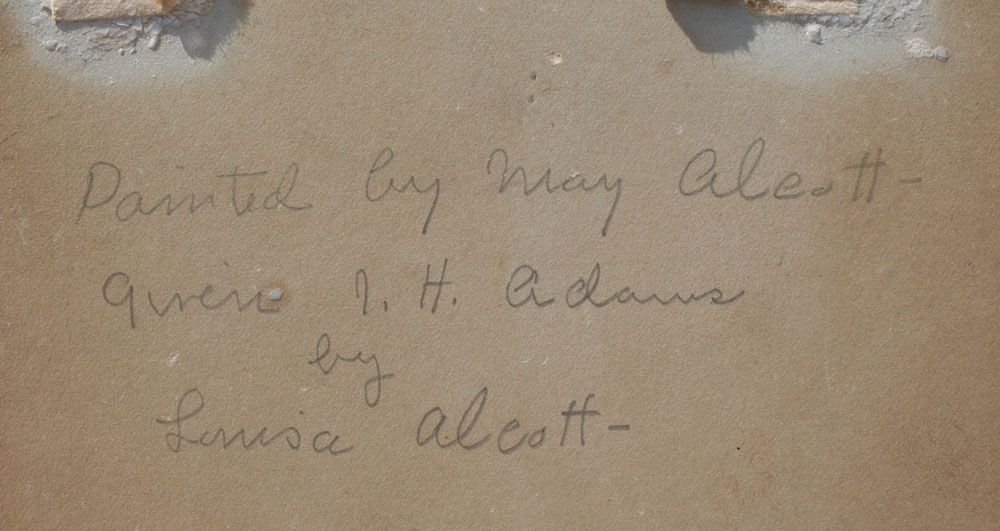 Painted by May Alcott -
Given J. H. Adams
by
Louisa Alcott -